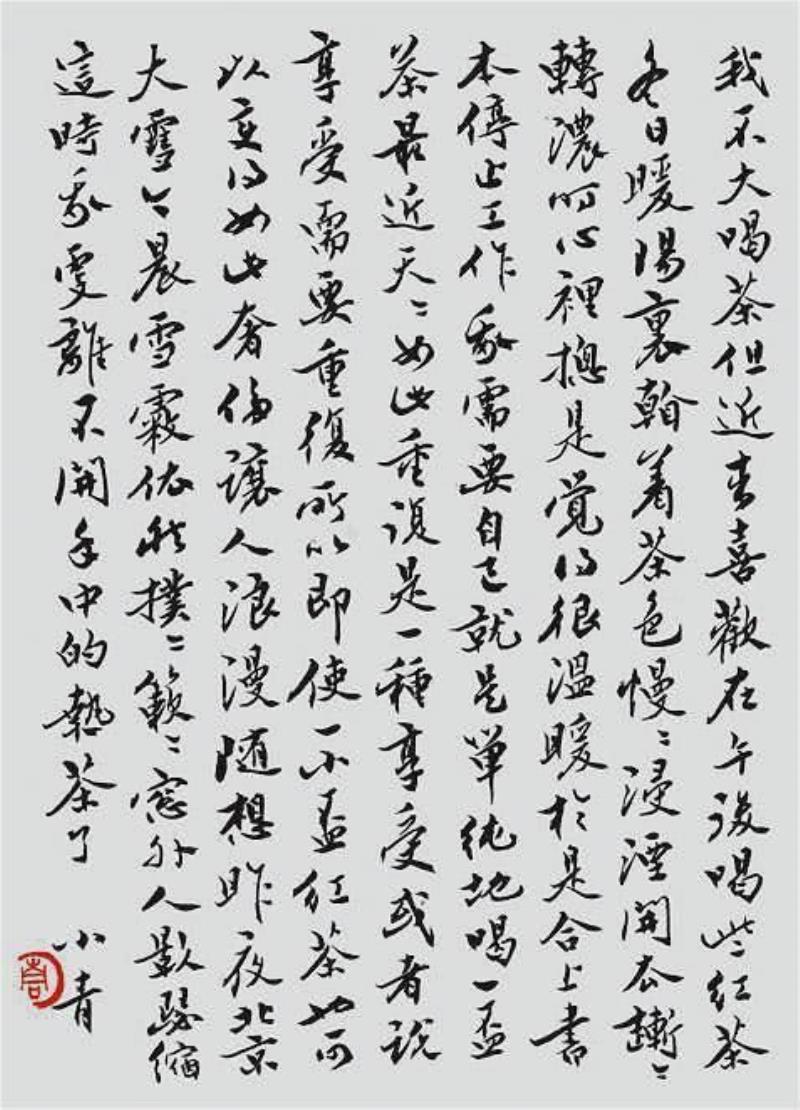 我不大喝茶但近来喜歡在午後喝些红茶
冬日暖陽裏翰着茶色慢〻浸湮開衣蹔〻
轉濃时心裡摠是覺得很溫暖於是合上書
本停止工作我需要自己就是單純地喝一盃
茶最近天〻如此重複是一種享受或者説
享受需要重復所以即使一小盃红茶也可
以变得如此奢侈讓人浪漫随想昨夜北京
大雪今晨雪霰依然撲〻簌〻窓外人影
縮
這時我更離不開手中的熱茶了 小青